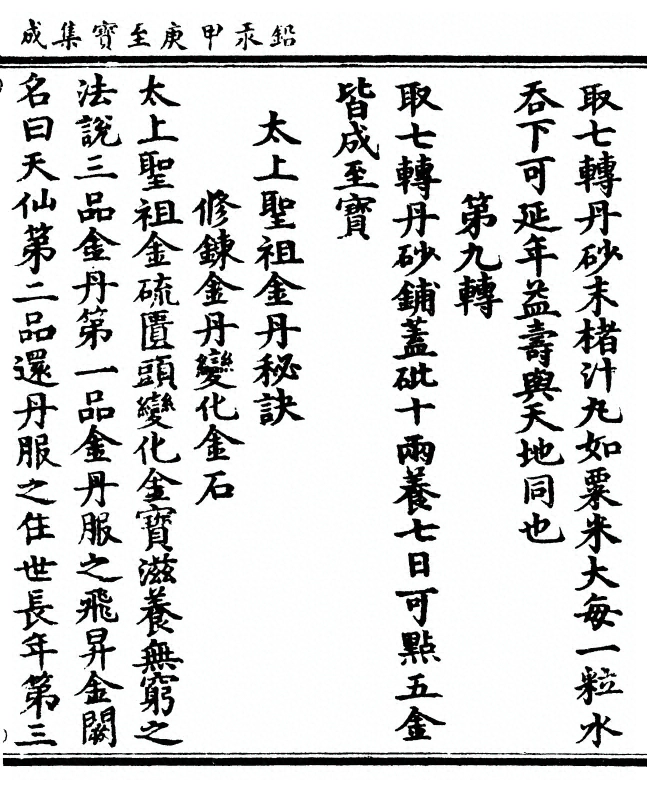 鉛汞甲庚至寶集成
取七轉丹砂末楮汁丸如粟米大每一粒水
吞下可延年益壽與天地同也
第九轉
取七轉丹砂鋪蓋砒十兩養七日可點五金
皆成至寶
太上聖祖金丹秘訣
修鍊金丹變化金石
太上聖祖金硫匱頭變化金寶滋養無窮之
法說三品金丹第一品金丹服之飛昇金闕
名曰天仙第二品還丹服之住世長年第三